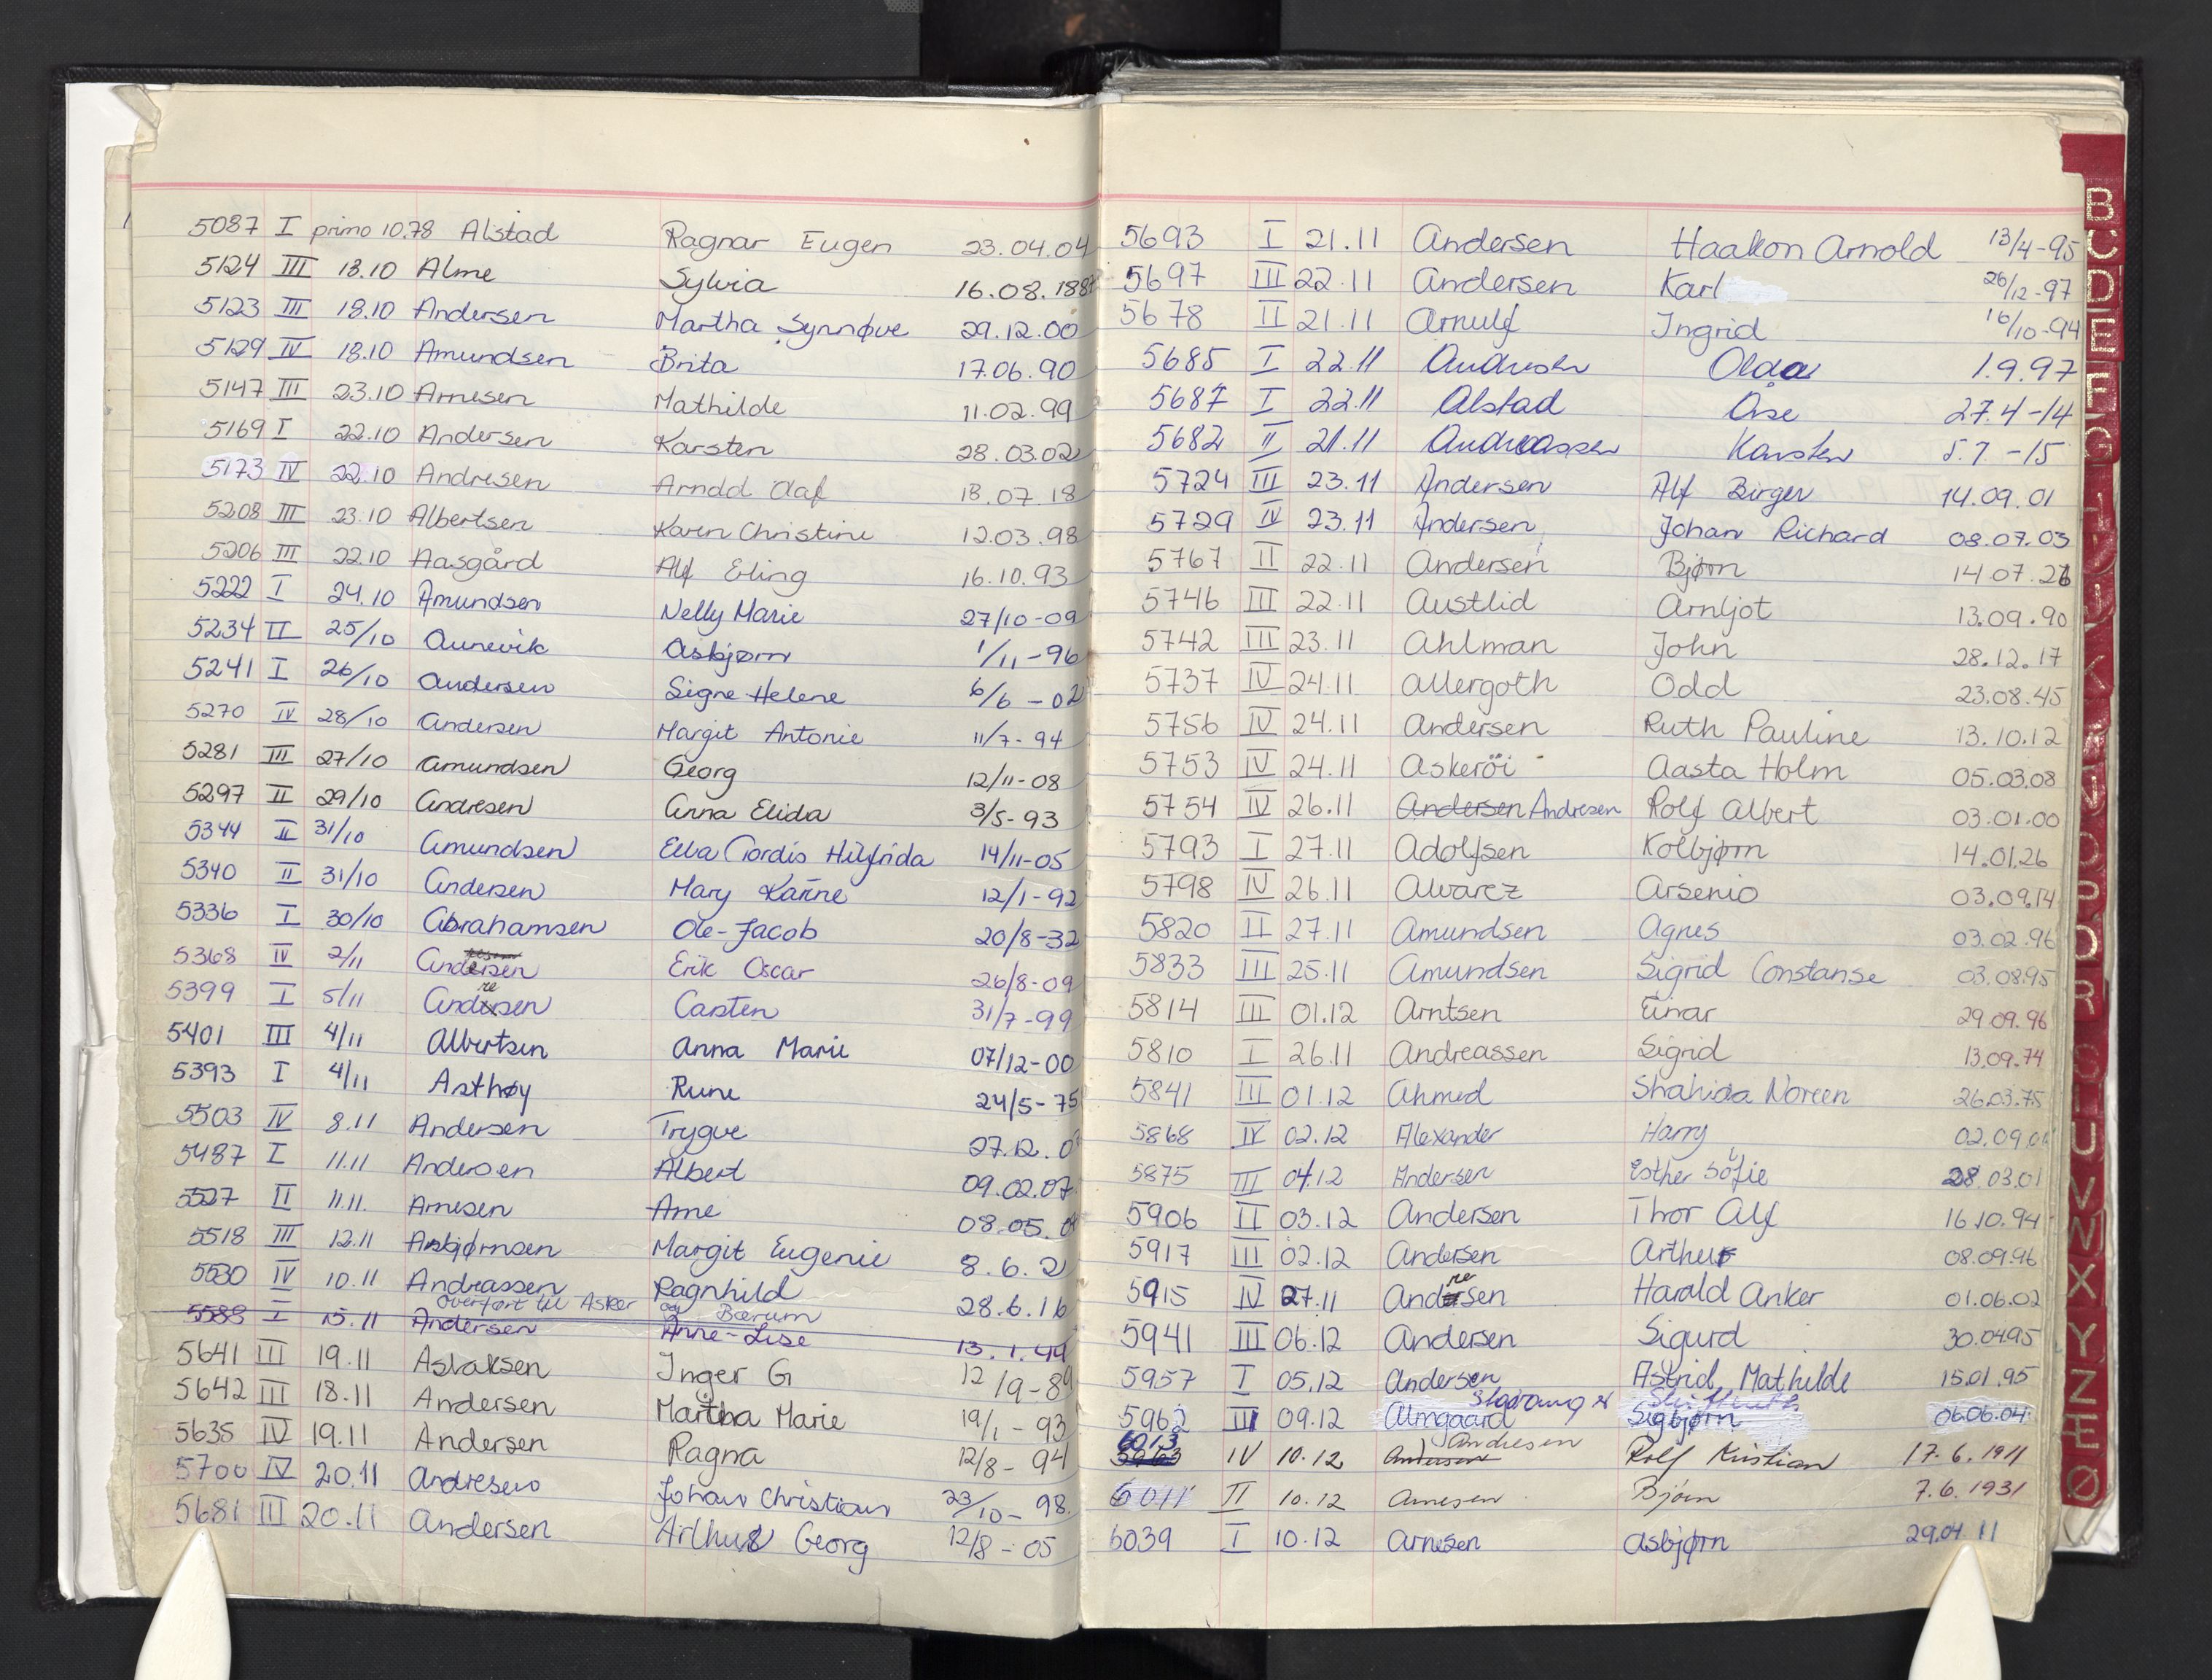 5087 I primo 10.78 Alstad Ragnar Eugen 23.04.04
5124 III 18.10 Alme Sylvia 16.08.188
5123 III 18.10 Andersen Martha Synnøve 29.12.00
5129 IV 18.10 Amundsen Brita 17.06.90
5147 III 23.10 Arnesen Mathilde 11.02.99
5169 I 22.10 Andersen Karsten 28.03.02
5173 IV 22.10 Andresen Arndd Olaf 18.07.18
5208 III 23.10 Albertsen Karen Christine 12.03.98
5206 III 22.10 Aasgård Alf Erling 16.10.93
5222 I 24.10 Amundsen Nelly Marie 27/10-09
5234 II 25/10 Aunevik Asbjørn 1/11-96
5241 I 26/10 Andersen Signe Helene 6/6-02
5270 IV 28/10 Andersen Margit Antonie 11/7-94
5281 III 27/10 Amundsen Georg 12/11-08
5297 II 29/10 Andresen Anna Elida 3/5-93
5344 II 31/10 Amundsen Ella Tordis Hilfrida 14/11-05
5340 II 31/10 Andersen Mary Karine 12/1-92
5336 I 30/10 Abrahamsen Ole-Jacob 20/8-32
5368 IV 2/11 Andersen Erik Oscar 26/8-09
5399 I 5/11 Andresen Carsten 31/7-99
5401 III 4/11 Albertsen Anna Marie 07/12-00
5393 I 4/11 Asthøy Rune 24/5-75
5503 IV 8.11 Andersen Trygve 27.12.0
5487 I 11.11 Andersen Albert 09.02.07
5527 II 11.11. Arnesen Arne 08.05.0
5518 III 12.11 Asbjørnsen Margit Eugenie 8.6.2
5530 IV 10.11 Andreassen Ragnhild 28.6.16
overført til Asker og Bærum
5588 I 15.11 Andersen Anne-Lise 13.1.44
5641 III 19.11 Aslaksen Inger G 12/9-89
5642 III 18.11 Andersen Martha Marie 19/1-93
5635 IV 19.11 Andersen Ragna 12/8-94
5700 IV 20.11 Andresen Johan Christian 23/10-98.
5681 III 20.11 Andersen Arthur Georg 12/8-05
5693 I 21.11 Andersen Haakon Arnold 13/4-95
5697 III 22.11 Andersen Karl 26/12-97
5678 II 21.11 Arnulf Ingrid 16/10-94
5685 I 22.11 Andresen Olga 1.9.97
5687 I 22.11 Alstad Åse 27.4-14
5682 II 21.11 Andreassen Karsten 5.7-15
5724 III 23.11 Andersen Alf Birger 14.09.01
5729 IV 23.11 Andersen Johan Richard 08.07.03
5767 II 22.11 Andersen Bjørn 14.07.26
5746 III 22.11 Austlid Arnljot 13.09.90
5742 III 23.11 Ahlman John 28.12.17
5737 IV 24.11 Allergoth Odd 23.08.45
5756 IV 24.11 Andersen Ruth Pauline 13.10.12
5753 IV 24.11 Askeröi Aasta Holm 05.03.08
5754 IV 26.11 Andersen Andresen Rolf Albert 03.01.00
5793 I 27.11 Adolfsen Kolbjørn 14.01.26
5798 IV 26.11 Alvarez Arsenio 03.09.14
5820 II 27.11 Amundsen Agnes 03.02.96
5833 III 25.11 Amundsen Sigrid Constanse 03.08.95
5814 III 01.12 Arntsen Einar 29.09.96
5810 I 26.11 Andreassen Sigrid 13.09.74
5841 III 01.12 Ahmed Shahida Noreen 26.03.75
5868 IV 02.12 Alexander Harry 02.09.0
5875 III 04.12 Andersen Esther Sofie 28.03.01
5906 II 03.12 Andersen Thor Alf 16.10.94
5917 III 02.12 Andersen Arthur 08.09.96
5915 IV 27.11 Andresen Harald Anker 01.06.02
5941 III 06.12 Andersen Sigurd 30.04.95
5957 I 05.12 Andersen Astrid Mathilde 15.01.95
5962 III 09.12 Almgaard Sigbjørn 06.06.04
6013 IV 10.12 Andersen Andresen Rolf Kristian 17.6.1911
6011 II 10.12 Arnesen Bjørn 7.6.1931
6039 I 10.12 Arnesen Asbjørn 29.04.11
B
C
D
E
F
G
I
J
K
O
P
R
U
V
W
X
Y
Z
Æ
Ø